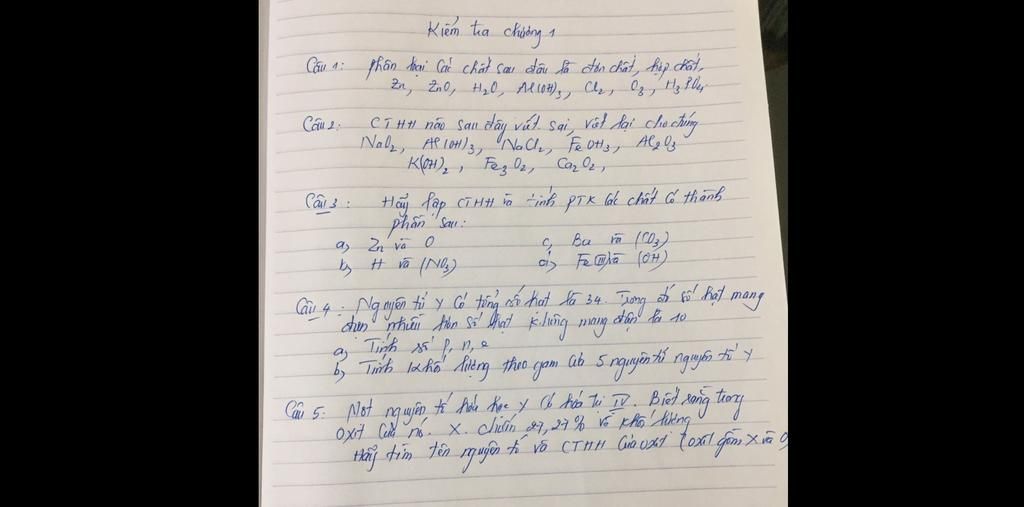 Kiểm tra chương 1
Câu 1: Phân loại các chất sau đâu là đơn chất, hợp chất,
Zn, ZnO, H2O, Al(OH)3, Cl2, O3, H3PO4
Câu 2: CTHH nào sau đây viết sai, viết lại cho đúng
NaO2, Al(OH)3, NaCl2, FeOH3, Al2O3
K(OH)2, Fe3O2, Ca2O2,
Câu 3: Hãy lập CTHH và tính PTK các chất có thành
phần sau:
a, Zn và O c, Ba và (CO3)
b, H và (NO3) d, Fe(III) và (OH)
Câu 4: Nguyên tử Y có tổng số hạt là 34. Trong đó số hạt mang
điện nhiều hơn số hạt không mang điện là 10
a, Tính số p, n, e
b, Tính khối lượng theo gam của 5 nguyên tử nguyên tố Y
Câu 5: Một nguyên tố hóa học Y có hóa trị IV. Biết rằng trong
oxit của nó. X. chiếm 27,27% về khối lượng
Hãy tìm tên nguyên tố và CTHH của oxit (oxit gồm X và O)